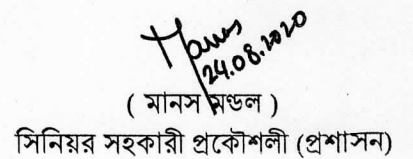 24.08.2020
( মানস মন্ডল )
সিনিয়র সহকারী প্রকৌশলী (প্রশাসন)